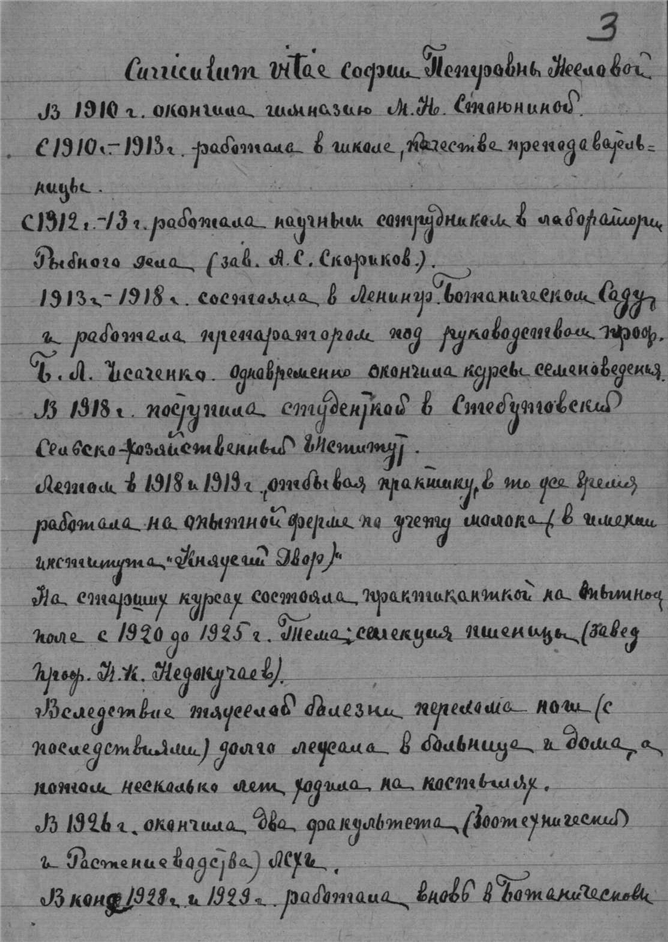 3
Curriculum vitae Софии Петровны Нееловой
В 1910 г. окончила гимназию М. Н. Стоюниной.
С 1910 г.-1913 г. работала в школе, качестве преподаватель=
ницы.
С 1912 г.-13 г. работала научным сотрудником в лаборатории
Рыбного дела (зав. А. С. Скориков.).
1913 г.-1918 г. состояла в Ленингр. Ботаническом Саду,
и работала препаратором под руководством проф.
Б. Л. Исаченко. Одновременно окончила курсы семеноведенья.
В 1918 г. поступила студенткой в Стебутовский
Сельско-хозяйственный институт.
Летом в 1918 и 1919 г., отбывая практику, в то же время
работала на опытной ферме по учету молока (в имении
института "Княжий Двор)"
На старших курсах состояла практиканткой на опытном
поле с 1920 до 1925 г. Тема: селекция пшеницы (завед
проф. Н. К. Недокучаев).
Вследствие тяжелой болезни перелома ноги (с
последствиями) долго лежала в больнице и дома, а
потом несколько лет ходила на костылях.
В 1926 г. окончила два факультета (Зоотехнический
и Растениеводства) ЛСХИ.
В конце 1928 г. и 1929 г. работала вновь в Ботаническом